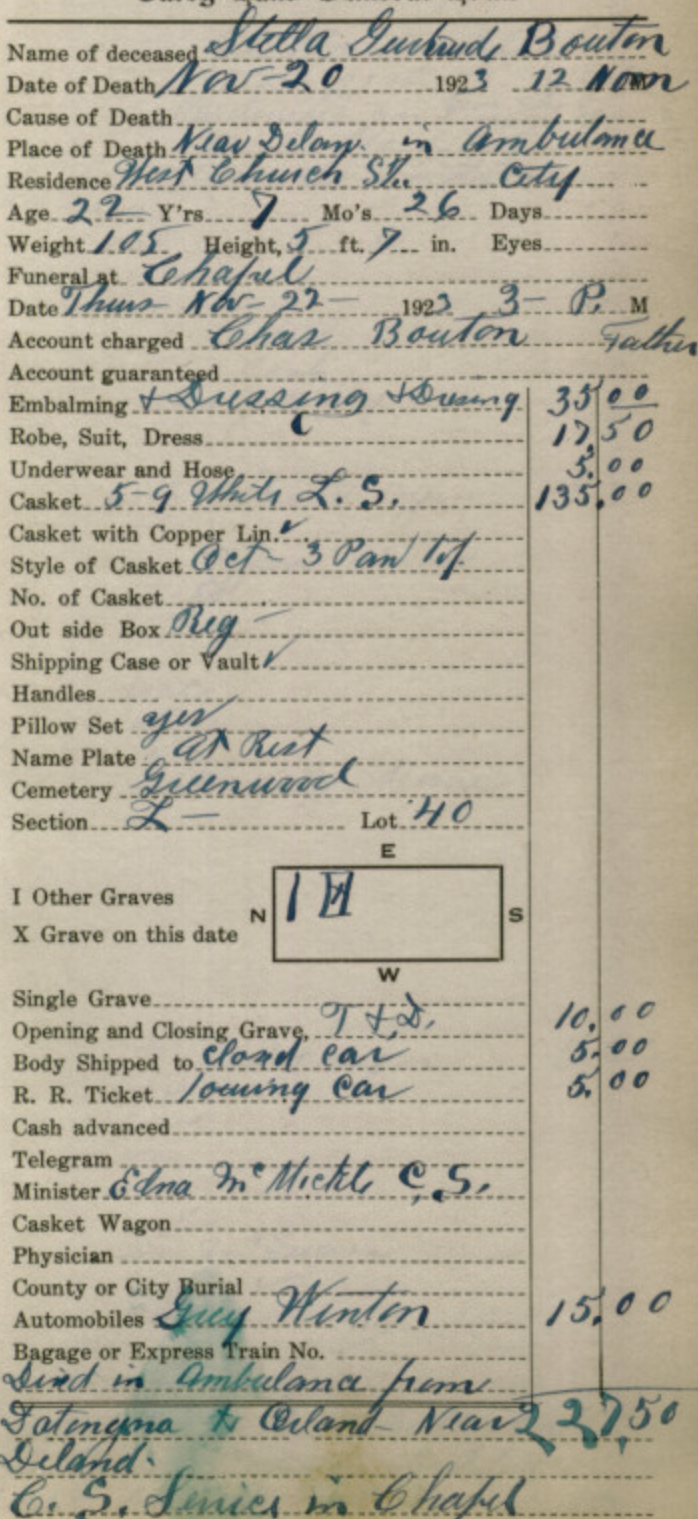 Name of deceased Stella Gertrude Bouton
Date of Death Nov-20 1923 12 Noon
Cause of Death
Place of Death Near Delan. in Ambulance
Residence West Church Str. City
Age 22 Y'rs 7 Mo's 26 Days
Weight 105 Height, 5 ft. 7 in. Eyes
Funeral at Chapel
Date Thurs Nov-22- 1923 3- P. M
Account charged Chas Bouton Father
Account guaranteed
Embalming & Dressing 35 00
Robe, Suit, Dress 17 50
Underwear and Hose 5.00
Casket 5-9 White L. S. 135.00
Casket with Copper Lin. ✓
Style of Casket Oct- 3 Pan Top
No. of Casket
Out side Box Reg -
Shipping Case or Vault ✓
Handles
Pillow Set yes
Name Plate At Rest
Cemetery Greenwood
Section L - Lot 40
E
I Other Graves
N I X S
X Grave on this date
W
Single Grave
Opening and Closing Grave, T & D. 10.00
Body Shipped to closed car 5.00
R. R. Ticket touring car 5.00
Cash advanced
Telegram
Minister Edna McMickle C.S.
Casket Wagon
Physician
County or City Burial
Automobiles Grey Winton 15.00
Bagage or Express Train No.
Died in Ambulance from
to Orland Near 227.50
Deland.
C. S. Service in Chapel